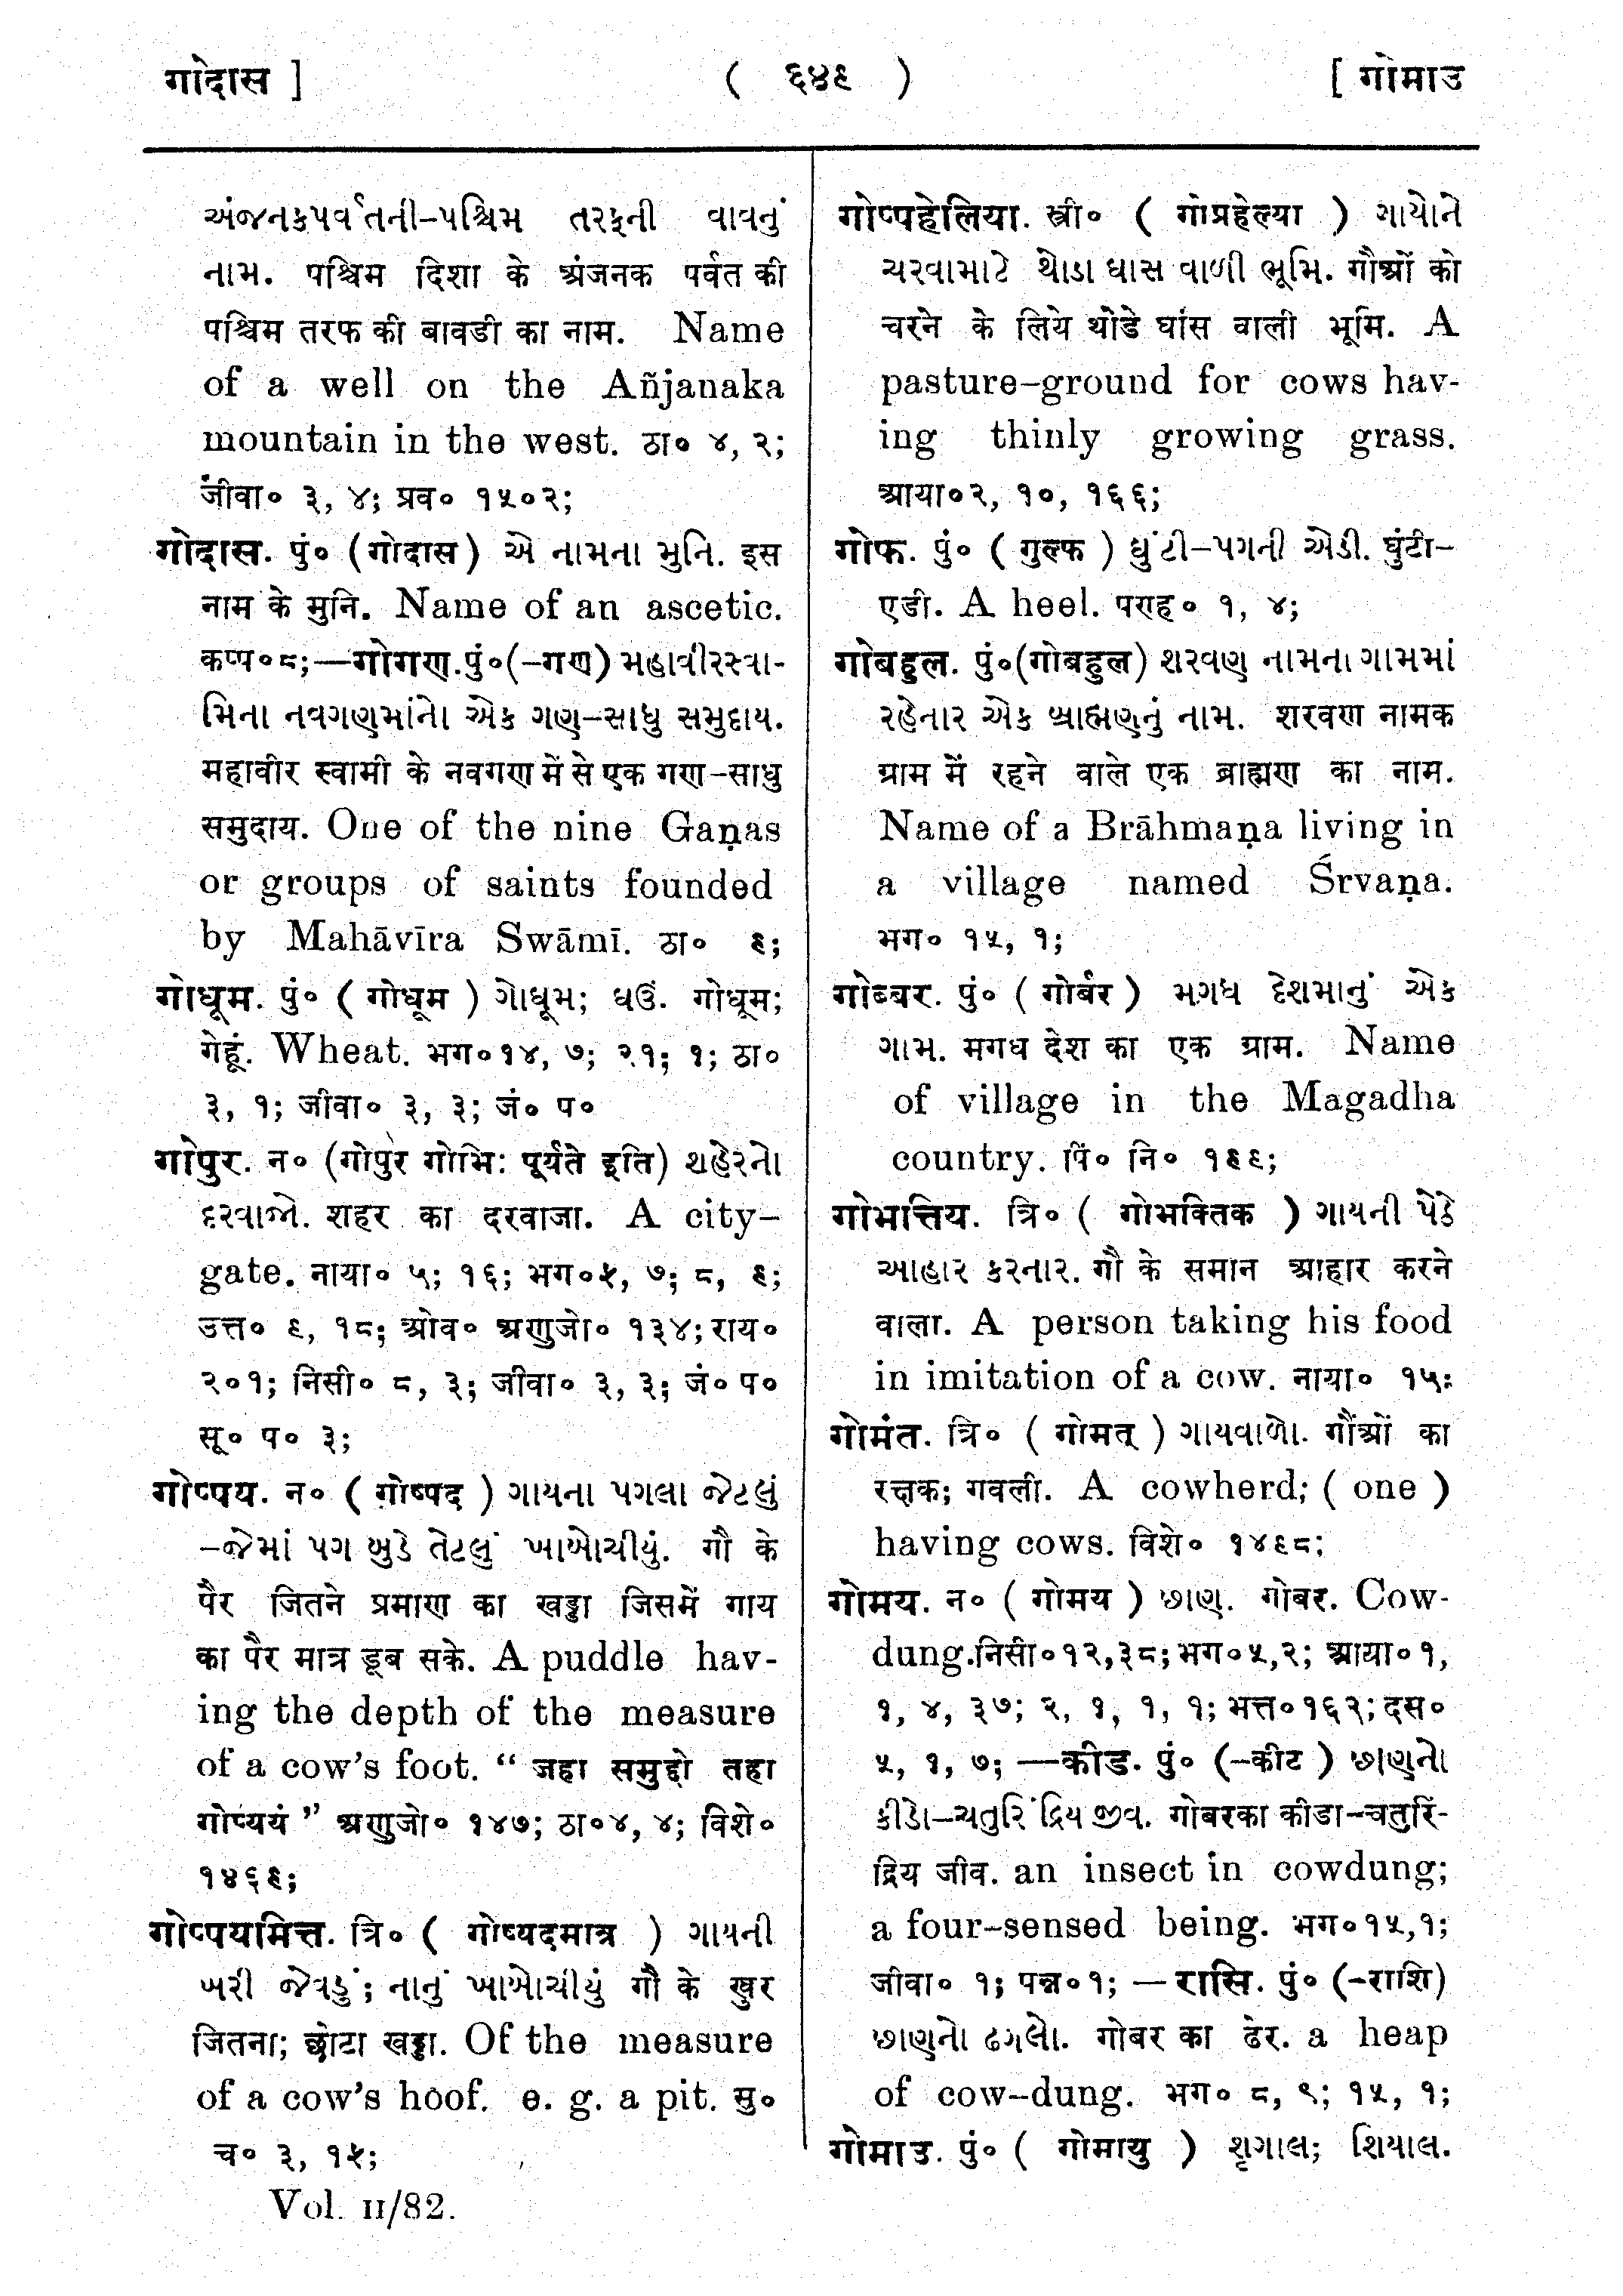 गोदास ]
( ६४९ )
[ गोमाउ
અંજનકપર્વતની–પશ્ચિમ તરફની વાવનું
નામ. पश्चिम दिशा के अंजनक पर्वत की
पश्चिम तरफ की बावडी का नाम. Name
of a well on the Añjanaka
mountain in the west. ठा० ४, २;
जीवा० ३, ४; प्रव० १५०२;
गोदास. पुं० (गोदास) એ નામના મુનિ. इस
नाम के मुनि. Name of an ascetic.
कप्प०८;—गोगण.पुं०(–गण) મહાવીરસ્વા-
મિના નવગણમાંનો એક ગણ–સાધુ સમુદાય.
महावीर स्वामी के नवगण में से एक गण–साधु
समुदाय. One of the nine Gaṇas
or groups of saints founded
by Mahāvīra Swāmī. ठा० ९;
गोधूम. पुं० ( गोधूम ) ગોધૂમ; ઘઉં. गोधूम;
गेहूं. Wheat. भग०१४, ७; २१; १; ठा०
३, १; जीवा० ३, ३; जं० प०
गोपुर. न० (गोपुर गोभिः पूर्यते इति) શહેરનો
દરવાજો. शहर का दरवाजा. A city–
gate. नाया० ५; १६; भग०५, ७; ८, ९;
उत्त० ९, १८; ओव० अणुजो० १३४; राय०
२०१; निसी० ८, ३; जीवा० ३, ३; जं० प०
सू० प० ३;
गोप्पय. न० ( गोष्पद ) ગાયના પગલા જેટલું
–જેમાં પગ બુડે તેટલું ખાબોચીયું. गौ के
पैर जितने प्रमाण का खड्डा जिसमें गाय
का पैर मात्र डूब सके. A puddle hav-
ing the depth of the measure
of a cow's foot. “ जहा समुद्दो तहा
गोप्ययं ” अणुजो० १४७; ठा०४, ४; विशे०
१४६९;
गोप्पयमित्त. त्रि० ( गोष्पदमात्र ) ગાયની
ખરી જેવડું; નાનું ખાબોચીયું गौ के खुर
जितना; छोटा खड्डा. Of the measure
of a cow's hoof. e. g. a pit. सु०
च० ३, १५;
Vol. II/82.
गोप्पहेलिया. स्त्री० ( गोप्रहेल्या ) ગાયોને
ચરવામાટે થોડા ઘાસ વાળી ભૂમિ. गौओं को
चरने के लिये थोडे घांस वाली भूमि. A
pasture–ground for cows hav-
ing thinly growing grass.
आया०२, १०, १६६;
गोफ. पुं० ( गुल्फ ) ઘુંટી–પગની એડી. घुंटी–
एडी. A heel. पराह० १, ४;
गोबहुल. पुं०(गोबहुल) શરવણ નામના ગામમાં
રહેનાર એક બ્રાહ્મણનું નામ. शरवण नामक
ग्राम में रहने वाले एक ब्राह्मण का नाम.
Name of a Brāhmaṇa living in
a village named Śrvaṇa.
भग० १५, १;
गोब्बर. पुं० ( गोर्बर ) મગધ દેશમાનું એક
ગામ. मगध देश का एक ग्राम. Name
of village in the Magadha
country. पिं० नि० १९९;
गोभत्तिय. त्रि० ( गोभक्तिक ) ગાયની પેઠે
આહાર કરનાર. गौ के समान आहार करने
वाला. A person taking his food
in imitation of a cow. नाया० १५;
गोमंत. त्रि० ( गोमत् ) ગાયવાળો. गौंओं का
रक्षक; गवली. A cowherd; ( one )
having cows. विशे० १४९८;
गोमय. न० ( गोमय ) છાણ. गोबर. Cow-
dung.निसी०१२,३८; भग०५,२; आया०१,
१, ४, ३७; २, १, १, १; भत्त०१६२; दस०
५, १, ७; —कीड. पुं० (–कीट ) છાણનો
કીડો–ચતુરિંદ્રિય જીવ. गोबरका कीडा–चतुरिं-
द्रिय जीव. an insect in cowdung;
a four–sensed being. भग०१५,१;
जीवा० १; पन्न०१; —रासि. पुं० (–राशि)
છાણનો ઢગલો. गोबर का ढेर. a heap
of cow–dung. भग० ८, ९; १५, १;
गोमाउ. पुं० ( गोमायु ) શૃગાલ; શિયાલ.